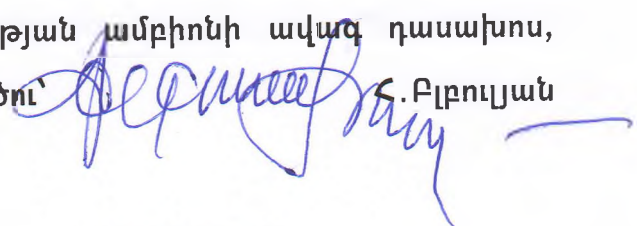 թյան ամբիոնի ավագ դասախոս,
ծու՝ Հ.Բլբուլյան